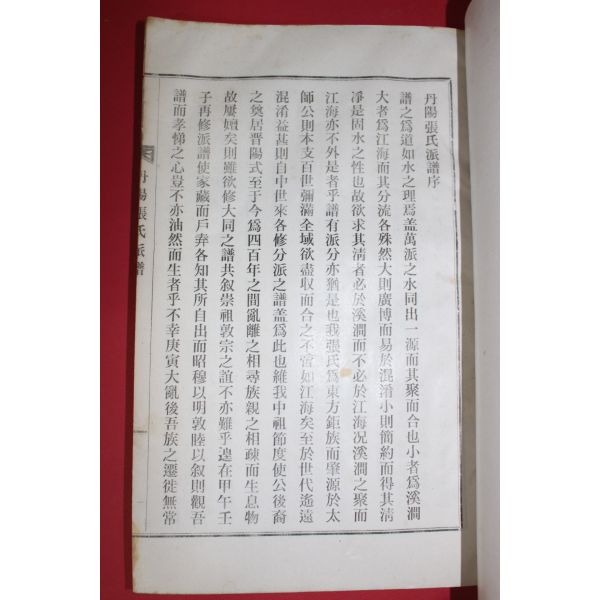 丹陽張氏派譜序
譜之爲道如水之理焉盖萬派之水同出一源而其聚而合也小者爲溪澗
大者爲江海而其分流各殊然大則廣博而易於混淆小則簡約而得其淸
凈是固水之性也故欲求其淸者必於溪澗而不必於江海况溪澗之聚而
江海亦不外是者乎譜有派分亦猶是也我張氏爲東方鉅族而肇源於太
師公則本支百世彌滿全域欲盡収而合之不啻如江海矣至於世代遙遠
混淆益甚則自中世來各修分派之譜盖爲此也維我中祖節度使公後裔
之奠居晋陽式至于今爲四百年之間亂離之相尋族親之相疎而生息物
故屢嬗矣則雖欲修大同之譜共叙崇祖敦宗之誼不亦難乎遑在甲午壬
子再修派譜使家藏而戶弆各知其所自出而昭穆以明敦睦以叙則觀吾
譜而孝悌之心豈不亦油然而生者乎不幸庚寅大亂後吾族之遷徙無常
丹陽張氏派譜